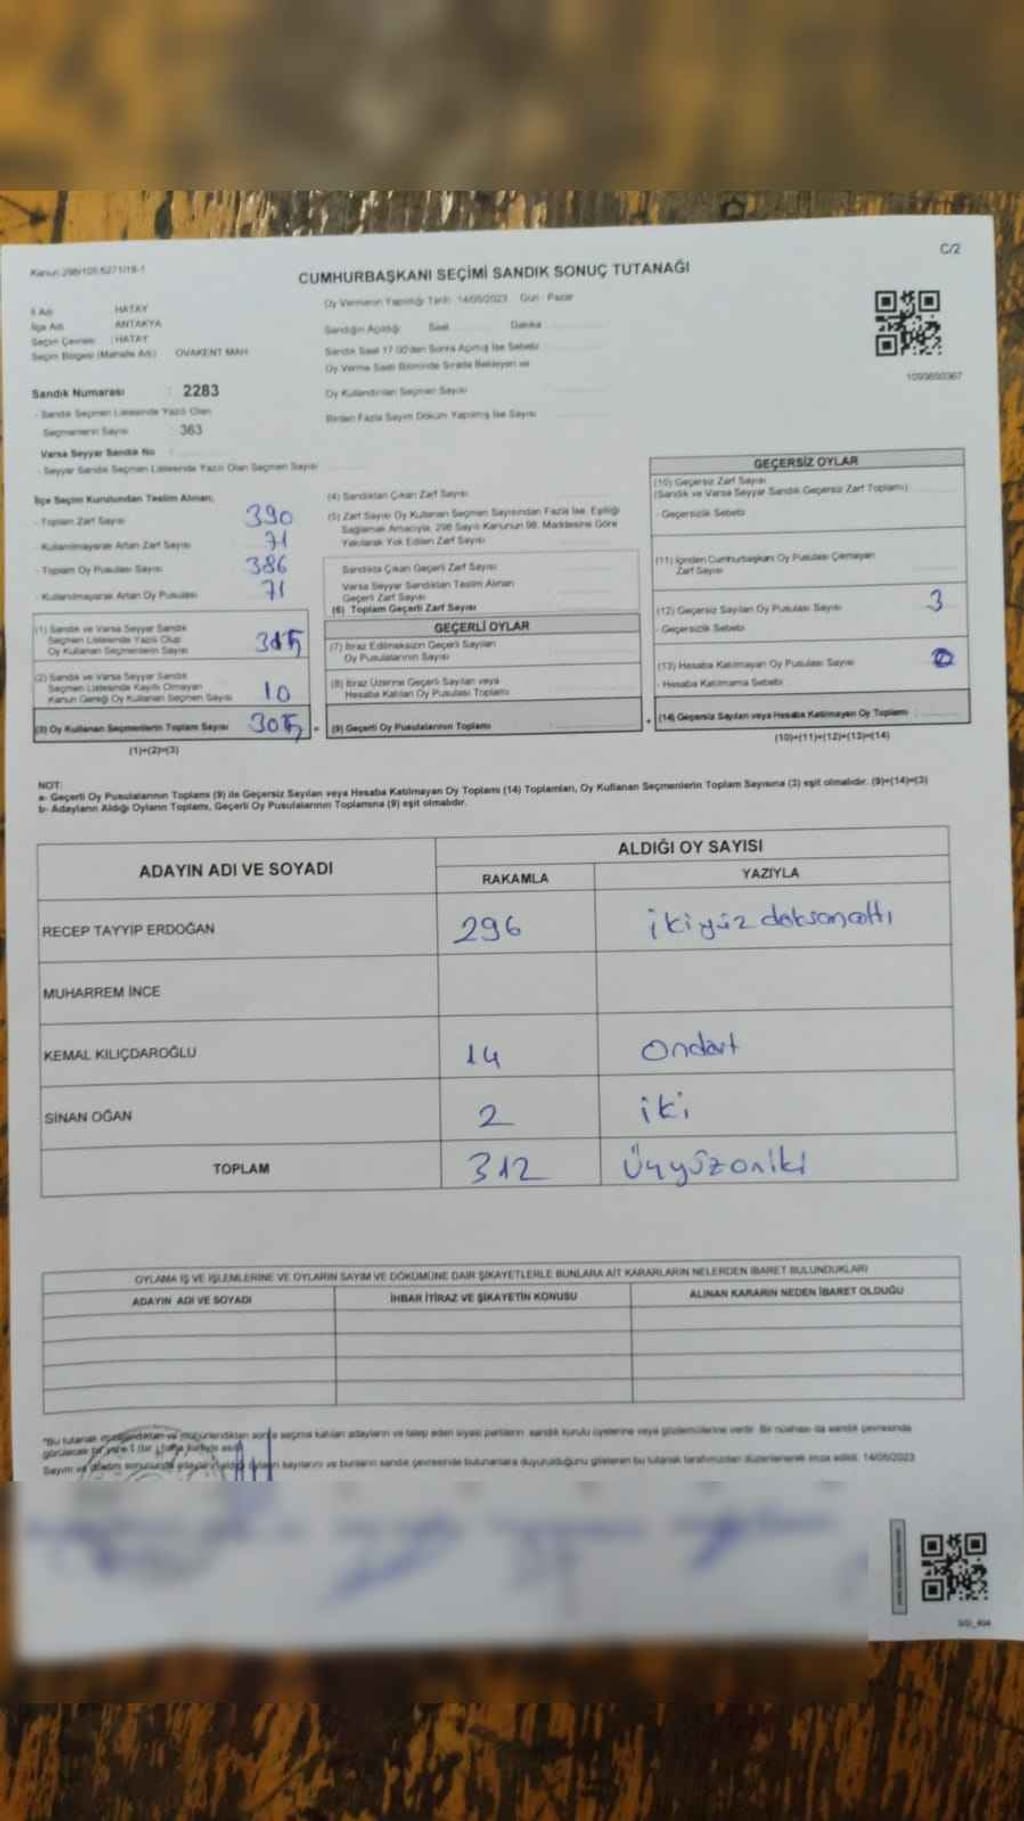 C/2
CUMHURBAŞKANI SEÇİMİ SANDIK SONUÇ TUTANAĞI
İl Adı HATAY
İlçe Adı ANTAKYA
Seçim Çevresi : HATAY
Seçim Bölgesi (Mahalle Adı) OVAKENT MAH.
Oy Vermenin Yapıldığı Tarih: 14/05/2023 Gün: Pazar
Sandığın Açıldığı Saat Dakika
Sandık Saat 17.00'den Sonra Açılmış İse Sebebi
Oy Verme Saati Bitiminde Sırada Bekleyen ve
Oy Kullandırılan Seçmen Sayısı
Birden Fazla Sayım Döküm Yapılmış İse Sayısı
Sandık Numarası : 2283
- Sandık Seçmen Listesinde Yazılı Olan
Seçmenlerin Sayısı : 363
Varsa Seyyar Sandık No
- Seyyar Sandık Seçmen Listesinde Yazılı Olan Seçmen Sayısı
İlçe Seçim Kurulundan Teslim Alınan;
- Toplam Zarf Sayısı 390
- Kullanılmayarak Artan Zarf Sayısı 71
- Toplam Oy Pusulası Sayısı 386
- Kullanılmayarak Artan Oy Pusulası 71
(1) Sandık ve Varsa Seyyar Sandık
Seçmen Listesinde Yazılı Olup
Oy Kullanan Seçmenlerin Sayısı
(2) Sandık ve Varsa Seyyar Sandık
Seçmen Listesinde Kayıtlı Olmayan
Kanun Gereği Oy Kullanan Seçmen Sayısı 10
(3) Oy Kullanan Seçmenlerin Toplam Sayısı 305
(1)+(2)=(3)
(4) Sandıktan Çıkan Zarf Sayısı
(5) Zarf Sayısı Oy Kullanan Seçmen Sayısından Fazla İse, Eşitliği
Sağlamak Amacıyla, 298 Sayılı Kanunun 98. Maddesine Göre
Yakılarak Yok Edilen Zarf Sayısı
Sandıkta Çıkan Geçerli Zarf Sayısı
Varsa Seyyar Sandıktan Teslim Alınan
Geçerli Zarf Sayısı
(6) Toplam Geçerli Zarf Sayısı
GEÇERLİ OYLAR
(7) İtiraz Edilmeksizin Geçerli Sayılan
Oy Pusulalarının Sayısı
(8) İtiraz Üzerine Geçerli Sayılan veya
Hesaba Katılan Oy Pusulası Toplamı
(9) Geçerli Oy Pusulalarının Toplamı
GEÇERSİZ OYLAR
(10) Geçersiz Zarf Sayısı
(Sandık ve Varsa Seyyar Sandık Geçersiz Zarf Toplamı)
- Geçersizlik Sebebi
(11) İçinden Cumhurbaşkanı Oy Pusulası Çıkmayan
Zarf Sayısı
(12) Geçersiz Sayılan Oy Pusulası Sayısı 3
- Geçersizlik Sebebi
(13) Hesaba Katılmayan Oy Pusulası Sayısı 0
- Hesaba Katılmama Sebebi
(14) Geçersiz Sayılan veya Hesaba Katılmayan Oy Toplamı
(10)+(11)+(12)+(13)=(14)
NOT:
a- Geçerli Oy Pusulalarının Toplamı (9) ile Geçersiz Sayılan veya Hesaba Katılmayan Oy Toplamı (14) Toplamları, Oy Kullanan Seçmenlerin Toplam Sayısına (3) eşit olmalıdır. (9)+(14)=(3)
b- Adayların Aldığı Oyların Toplamı, Geçerli Oy Pusulalarının Toplamına (9) eşit olmalıdır.
ADAYIN ADI VE SOYADI ALDIĞI OY SAYISI
RAKAMLA YAZIYLA
RECEP TAYYİP ERDOĞAN 296 ikiyüz doksanaltı
MUHARREM İNCE
KEMAL KILIÇDAROĞLU 14 ondört
SİNAN OĞAN 2 iki
TOPLAM 312 Üçyüzoniki
OYLAMA İŞ VE İŞLEMLERİNE VE OYLARIN SAYIM VE DÖKÜMÜNE DAİR ŞİKAYETLERLE BUNLARA AİT KARARLARIN NELERDEN İBARET BULUNDUKLARI
ADAYIN ADI VE SOYADI İHBAR İTİRAZ VE ŞİKAYETİN KONUSU ALINAN KARARIN NEDEN İBARET OLDUĞU